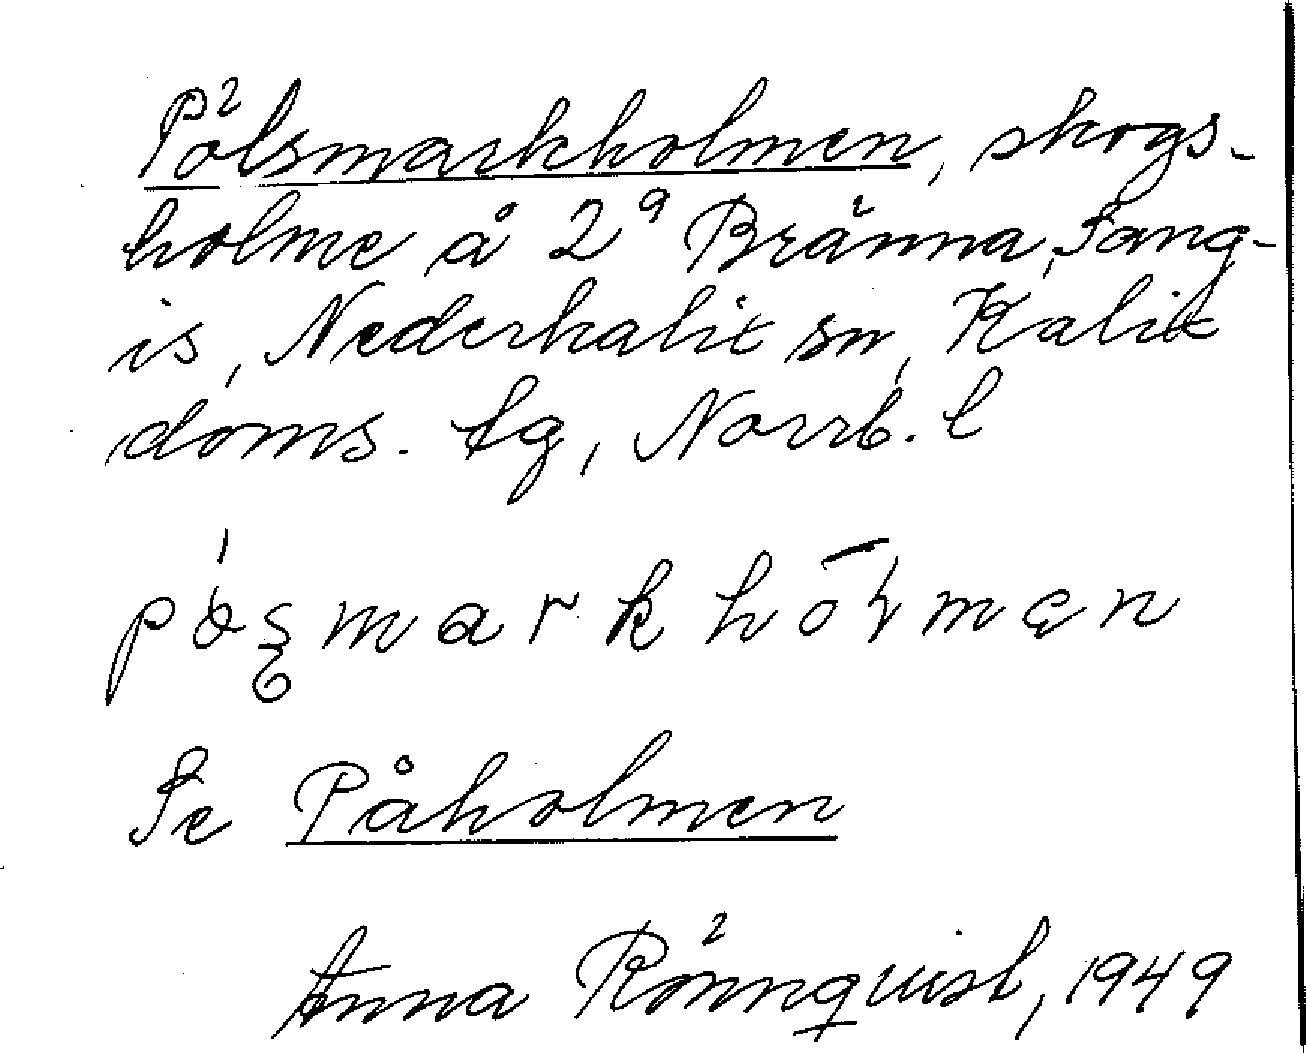 Pålsmarkholmen, skogs-
holme å 2⁹ Bränna, Sang-
is, Nederkalix sn, Kalix
doms. tg, Norrb. l
Se Påholmen
Anna Rönnquist, 1949